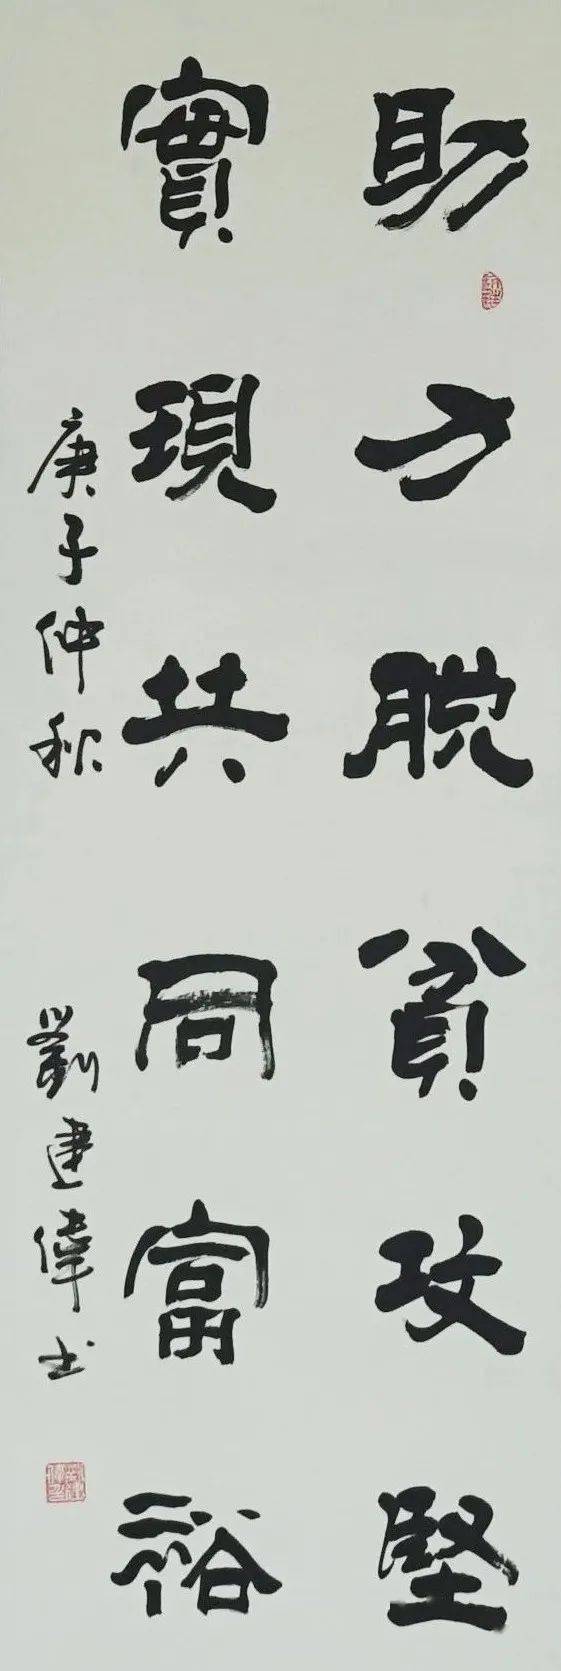 助力脫貧攻堅
實現共同富裕
庚子仲秋 劉建偉书